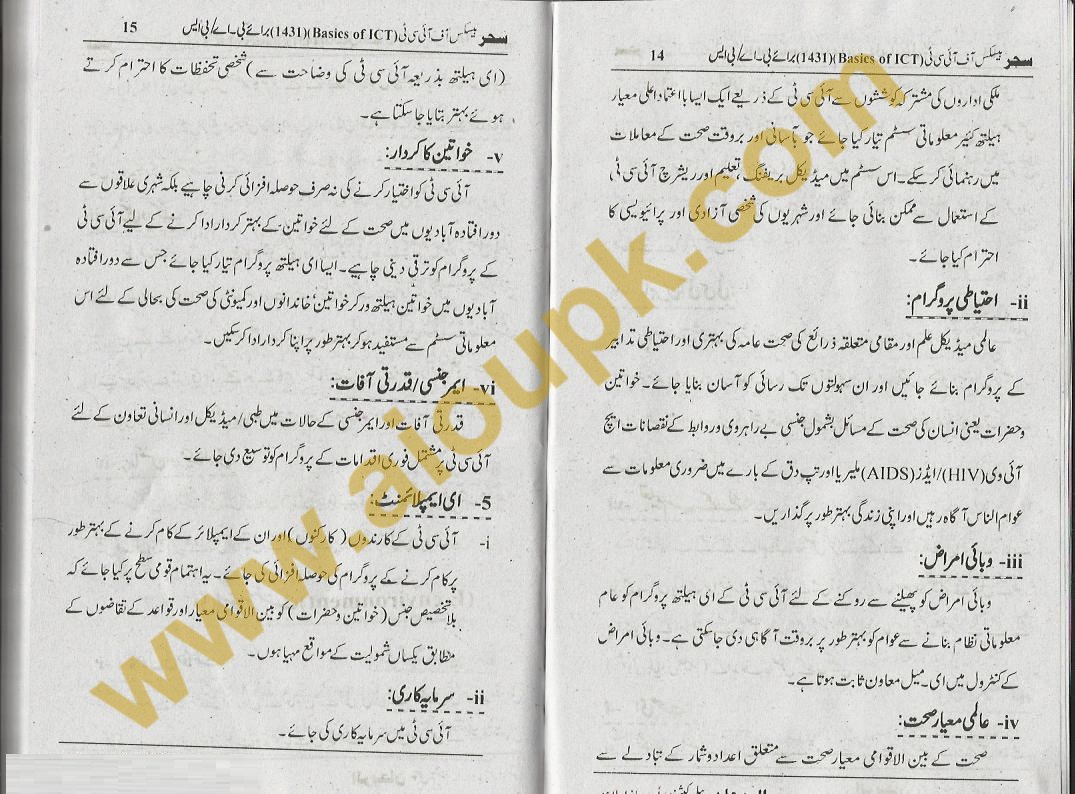 سحر بیسکس آف آئی سی ٹی (Basics of ICT)(1431) برائے بی۔اے/بی ایس 14
ملکی اداروں کی مشترکہ کوششوں سے آئی سی ٹی کے ذریعے ایک ایسا با اعتماد اعلیٰ معیار
ہیلتھ کئیر معلوماتی سسٹم تیار کیا جائے جو بآسانی اور بروقت صحت کے معاملات
میں رہنمائی کر سکے۔ اس سسٹم میں میڈیکل بریفنگ، تعلیم اور ریسرچ آئی سی ٹی
کے استعمال سے ممکن بنائی جائے اور شہریوں کی شخصی آزادی اور پرائیویسی کا
احترام کیا جائے۔
ii- احتیاطی پروگرام:
عالمی میڈیکل علم اور مقامی متعلقہ ذرائع کی صحت عامہ کی بہتری اور احتیاطی تدابیر
کے پروگرام بنائے جائیں اور ان سہولتوں تک رسائی کو آسان بنایا جائے۔ خواتین
و حضرات یعنی انسان کی صحت کے مسائل بشمول جنسی بے راہروی و روابط کے نقصانات ایچ
آئی وی (HIV)/ ایڈز (AIDS) ملیریا اور تپ دق کے بارے میں ضروری معلومات سے
عوام الناس آگاہ رہیں اور اپنی زندگی بہتر طور پر گذاریں۔
iii- وبائی امراض:
وبائی امراض کو پھیلنے سے روکنے کے لئے آئی سی ٹی کے ای ہیلتھ پروگرام کو عام
معلوماتی نظام بنانے سے عوام کو بہتر طور پر بروقت آگاہی دی جا سکتی ہے۔ وبائی امراض
کے کنٹرول میں ای۔میل معاون ثابت ہوتا ہے۔
iv- عالمی معیار صحت:
صحت کے بین الاقوامی معیار صحت سے متعلق اعداد و شمار کے تبادلے سے
سحر بیسکس آف آئی سی ٹی (Basics of ICT)(1431) برائے بی۔اے/بی ایس 15
(ای ہیلتھ بذریعہ آئی سی ٹی کی وضاحت سے) شخصی تحفظات کا احترام کرتے
ہوئے بہتر بتایا جا سکتا ہے۔
v- خواتین کا کردار:
آئی سی ٹی کو اختیار کرنے کی نہ صرف حوصلہ افزائی کرنی چاہیے بلکہ شہری علاقوں سے
دور افتادہ آبادیوں میں صحت کے لئے خواتین کے بہتر کردار ادا کرنے کے لیے آئی سی ٹی
کے پروگرام کو ترقی دینی چاہیے۔ ایسا ای ہیلتھ پروگرام تیار کیا جائے جس سے دور افتادہ
آبادیوں میں خواتین ہیلتھ ورکر خواتین، خاندانوں اور کمیونٹی کی صحت کی بحالی کے لئے اس
معلوماتی سسٹم سے مستفید ہو کر بہتر طور پر اپنا کردار ادا کر سکیں۔
vi- ایمرجنسی/قدرتی آفات:
قدرتی آفات اور ایمرجنسی کے حالات میں طبی/میڈیکل اور انسانی تعاون کے لئے
آئی سی ٹی پر مشتمل فوری اقدامات کے پروگرام کو توسیع دی جائے۔
5- ای ایمپلائمنٹ:
i- آئی سی ٹی کے کارندوں (کارکنوں) اور ان کے ایمپلائر کے کام کرنے کے بہتر طور
پر کام کرنے کے پروگرام کی حوصلہ افزائی کی جائے۔ یہ اہتمام قومی سطح پر کیا جائے کہ
بلا تخصیص جنس (خواتین و حضرات) کو بین الاقوامی معیار اور قواعد کے تقاضوں کے
مطابق یکساں شمولیت کے مواقع مہیا ہوں۔
ii- سرمایہ کاری:
آئی سی ٹی میں سرمایہ کاری کی جائے۔
www.aioupk.com